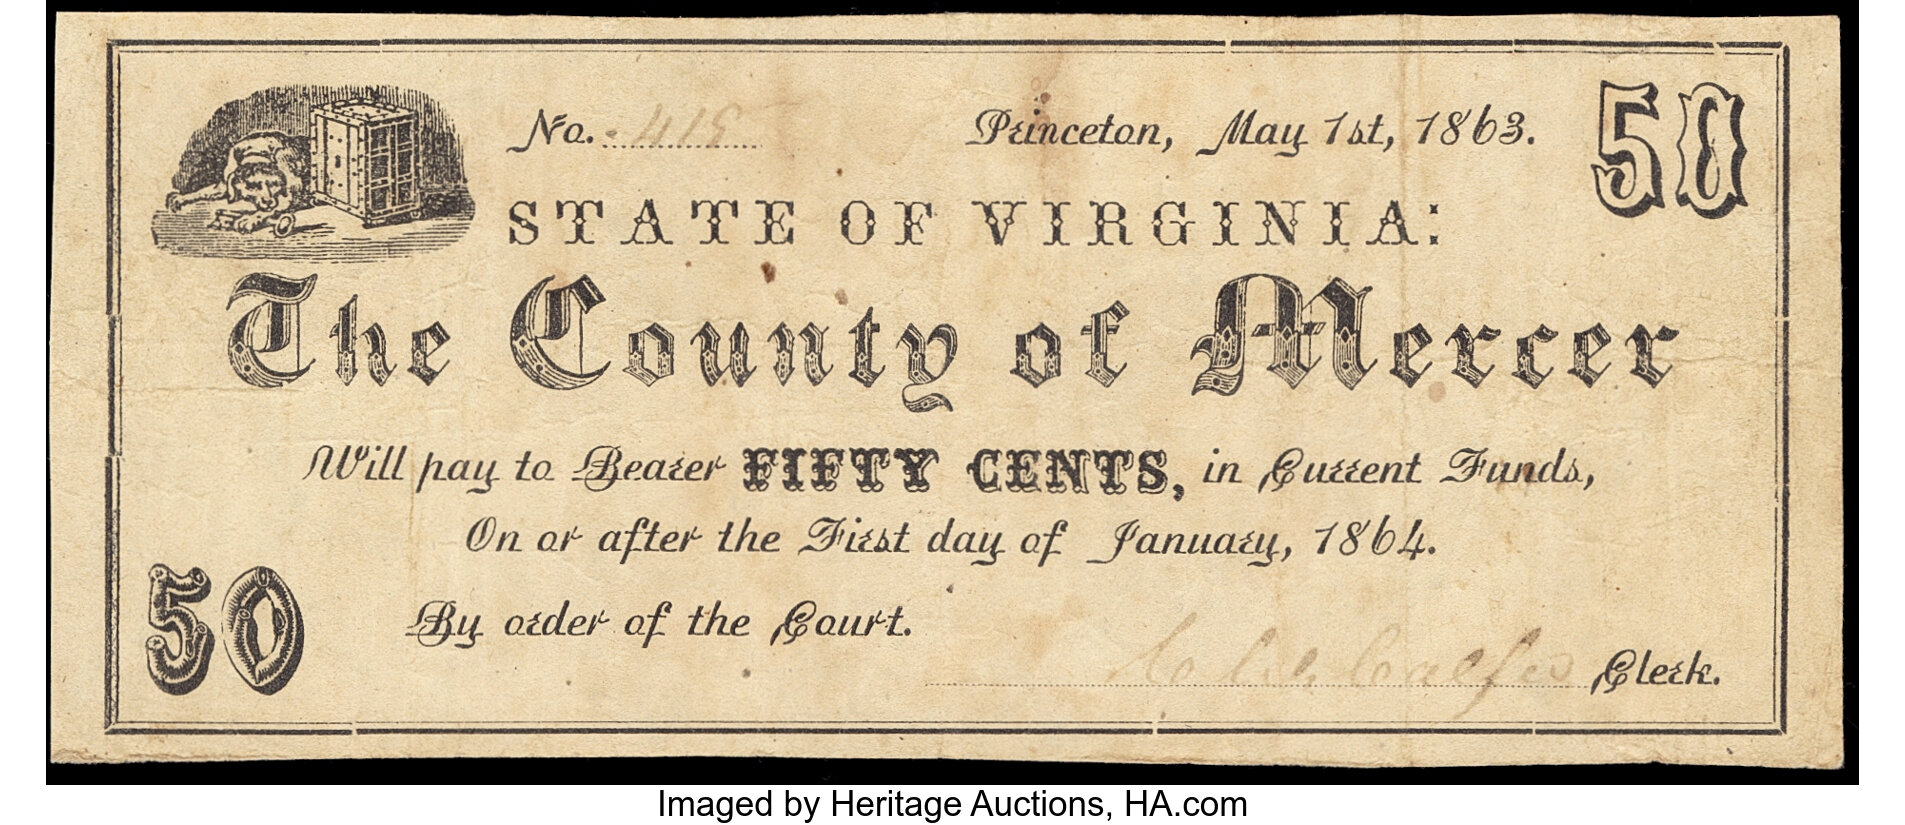 No. 418
Princeton, May 1st, 1863.
50
STATE OF VIRGINIA:
The County of Mercer
Will pay to Bearer FIFTY CENTS, in Current Funds,
On or after the First day of January, 1864.
50
By order of the Court.
Clerk.
Imaged by Heritage Auctions, HA.com